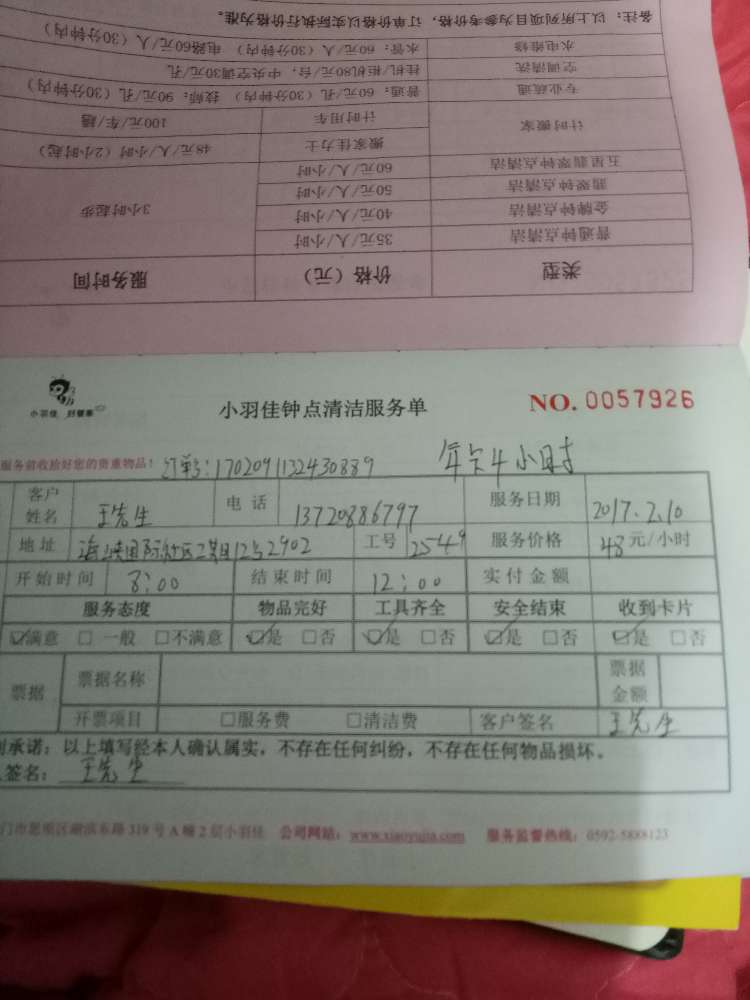 备注：以上所列项目为参考价格，订单价格以实际执行价格为准。
水电维修 水管：60元/人（30分钟内） 电路60元/人（30分钟内）
空调清洗 挂机/柜机80元/台，中央空调30元/孔
专业疏通 普通：60元/孔（30分钟内） 技师：90元/孔（30分钟内）
计时搬家 计时用车 100元/车/趟
搬家佳力士 48元/人/小时（2小时起）
五星翡翠钟点清洁 60元/人/小时 3小时起步
翡翠钟点清洁 50元/人/小时
金牌钟点清洁 40元/人/小时
普通钟点清洁 35元/人/小时
类型 价格（元） 服务时间
小羽佳 好管家
小羽佳钟点清洁服务单 NO. 0057926
服务前收拾好您的贵重物品！ 订单号：1702091132430889 年卡4小时
客户姓名 王先生 电话 13720886797 服务日期 2017.2.10
地址 海峡国际社区2期12号2902 工号 2549 服务价格 48元/小时
开始时间 8:00 结束时间 12:00 实付金额
服务态度 物品完好 工具齐全 安全结束 收到卡片
☑满意 □一般 □不满意 ☑是 □否 ☑是 □否 ☑是 □否 ☑是 □否
票据 票据名称 票据金额
开票项目 □服务费 □清洁费 客户签名 王先生
承诺：以上填写经本人确认属实，不存在任何纠纷，不存在任何物品损坏。
签名：王先生
门市思明区湖滨东路319号A幢2层小羽佳 公司网站：www.xiaoyujia.com 服务监督热线：0592-5888123